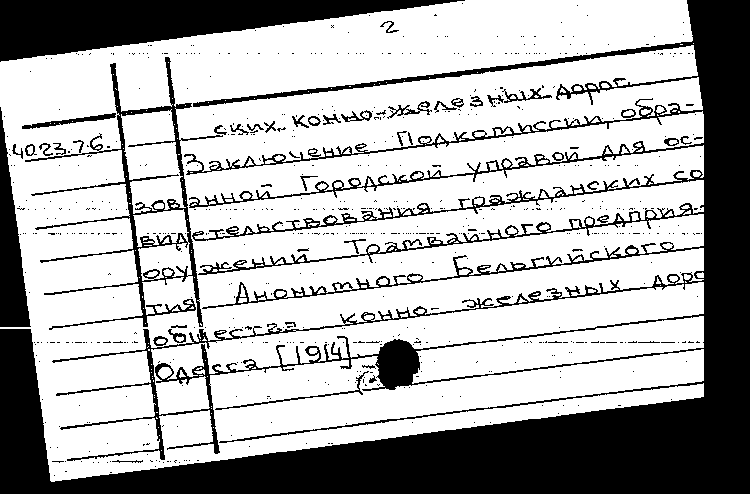 2
ских конно-железных дорог.
4023.76. Заключение Подкомиссии, обра-
зованной Городской управой для ос-
видетельствования гражданских со
оружений Трамвайного предприя-
тия Анонимного Бельгийского
общества конно-железных дорог
Одесса, [1914].